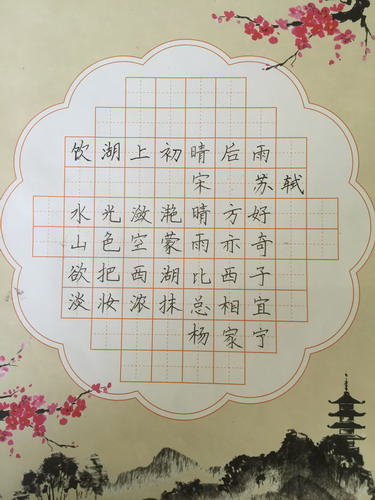 饮湖上初晴后雨
宋 苏轼
水光潋滟晴方好
山色空蒙雨亦奇
欲把西湖比西子
淡妆浓抹总相宜
杨家宁